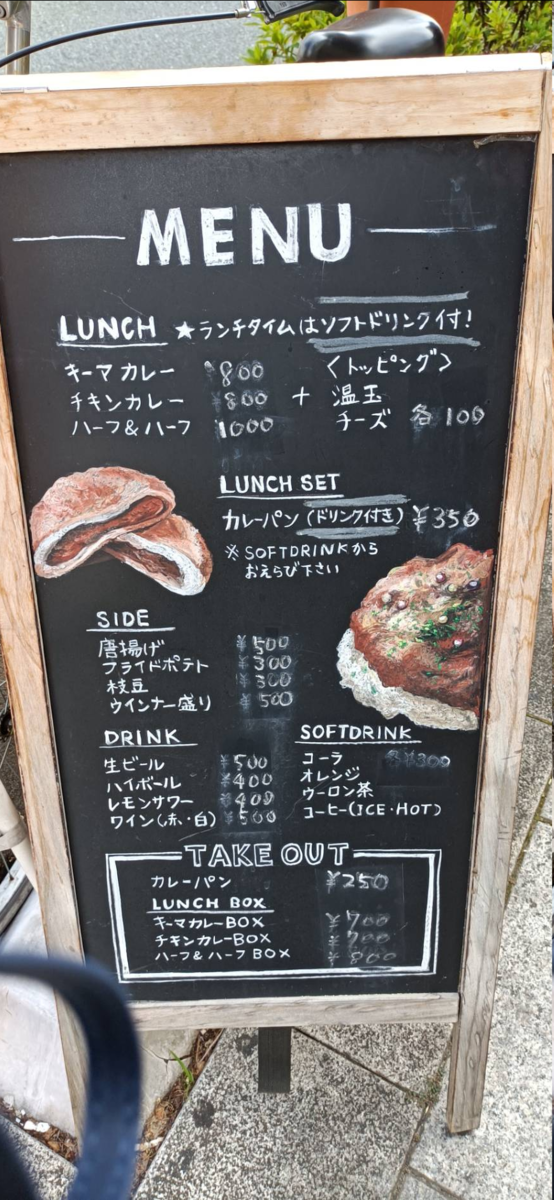 MENU
LUNCH ★ランチタイムはソフトドリンク付!
キーマカレー ¥800
チキンカレー ¥800
ハーフ&ハーフ 1000
+
〈トッピング〉
温玉
チーズ 各100
LUNCH SET
カレーパン(ドリンク付き) ¥350
※SOFTDRINKから
おえらび下さい
SIDE
唐揚げ ¥500
フライドポテト ¥300
枝豆 ¥300
ウインナー盛り ¥500
DRINK
生ビール ¥500
ハイボール ¥400
レモンサワー ¥400
ワイン(赤・白) ¥500
SOFTDRINK
コーラ 各¥300
オレンジ
ウーロン茶
コーヒー(ICE・HOT)
TAKE OUT
カレーパン ¥250
LUNCH BOX
キーマカレーBOX ¥700
チキンカレーBOX ¥700
ハーフ&ハーフBOX ¥800